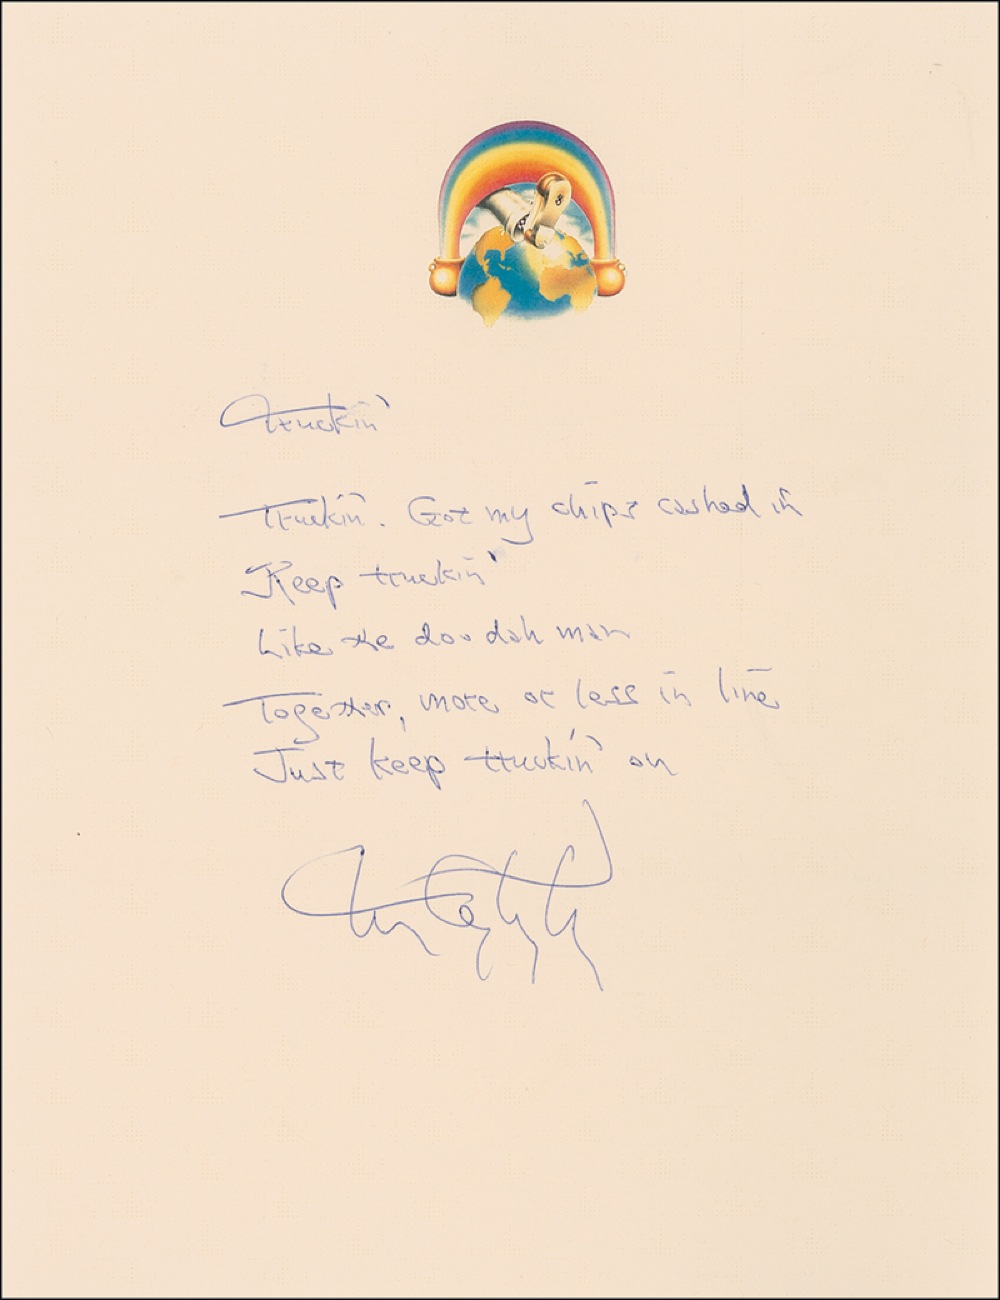 Truckin'
Truckin'. Got my chips cashed in
Keep truckin'
Like the doo dah man
Together, more or less in line
Just keep truckin' on